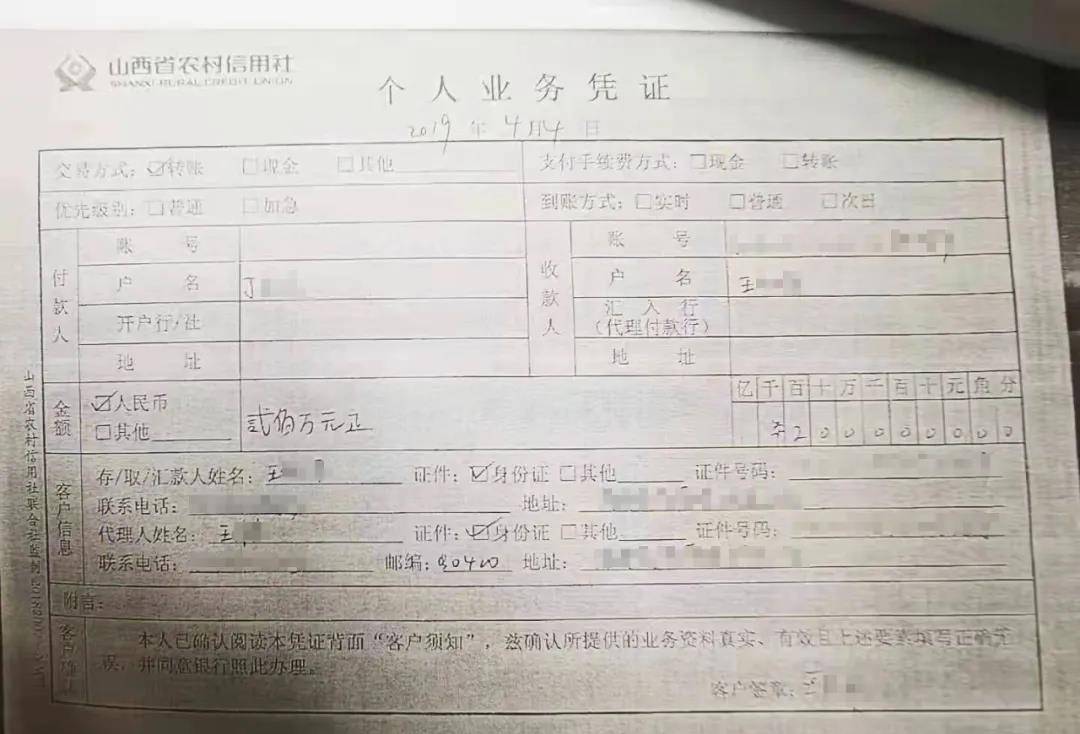 山西省农村信用社
SHANXI RURAL CREDIT UNION
个人业务凭证
2019年4月4日
交易方式：☑转账 □现金 □其他 支付手续费方式：□现金 □转账
优先级别：□普通 □加急 到账方式：□实时 □普通 □次日
付款人 账号 收款人 账号
户名 丁 户名 王
开户行/社 汇入行（代理付款行）
地址 地址
金额 ☑人民币 □其他 贰佰万元正 亿千百十万千百十元角分
¥200000000
客户信息
存/取/汇款人姓名：王 证件：☑身份证 □其他 证件号码：
联系电话： 地址：
代理人姓名：王 证件：☑身份证 □其他 证件号码：
联系电话： 邮编： 地址：
附言：
客户确认
本人已确认阅读本凭证背面“客户须知”，兹确认所提供的业务资料真实、有效且上述要素填写正确无
误，并同意银行照此办理。
客户签章：
山西省农村信用社联合社监制